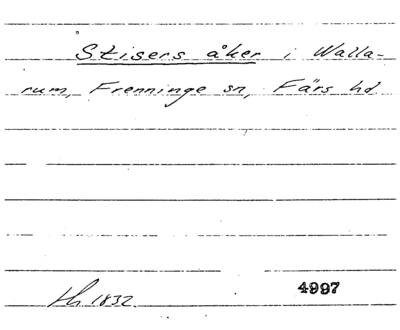 Stisers åker i Walla-
rum, Frenninge sn, Färs hd
Lh 1832
4997